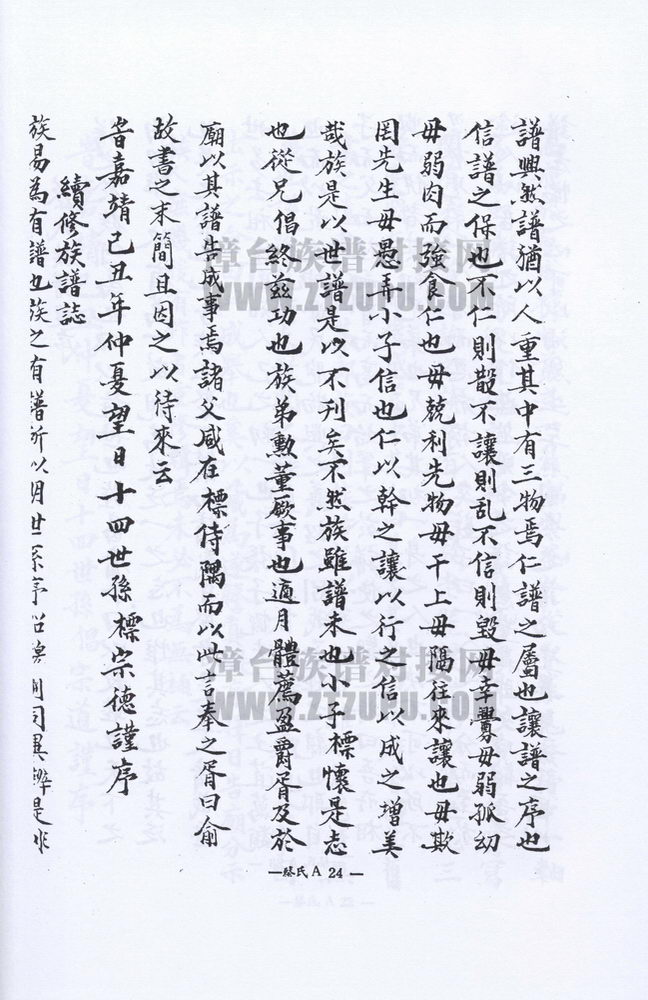 譜興然譜猶以人重其中有三物焉仁譜之屬也讓譜之序也
信譜之保也不仁則散不讓則乱不信則毀毋幸釁毋弱孤幼
毋弱肉而強食仁也毋兢利先物毋干上毋隔往來讓也毋欺
罔先生毋愚弄小子信也仁以幹之讓以行之信以成之增美
哉族是以世譜是以不刊矣不然族雖譜未也小子標懷是志
也從兄倡終茲功也族弟勳董厥事也適月體薦盈爵胥及於
廟以其譜告成事焉諸父咸在標侍隅而以此言奉之胥曰俞
故書之末簡且因之以待來云
旹嘉靖己丑年仲夏望日十四世孫標宗德謹序
續修族譜誌
族易為有譜也族之有譜所以明世系序昭穆別同異辨是非
漳台族谱对接网
WWW.ZTZUPU.COM
漳台族谱对接网
WWW.ZTZUPU.COM
—蔡氏A 24—